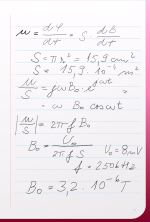 u = dΦ/dt = S · dB/dt
S = πr² = 15,9 cm²
S = 15,9 · 10⁻⁴ m²
u/S = jωB₀ e^jωt
= ω B₀ cos ωt
|u/S| = 2πf B₀
B₀ = U₀/2πfS U₀ = 8 mV
f = 250 kHz
B₀ = 3,2 · 10⁻⁶ T